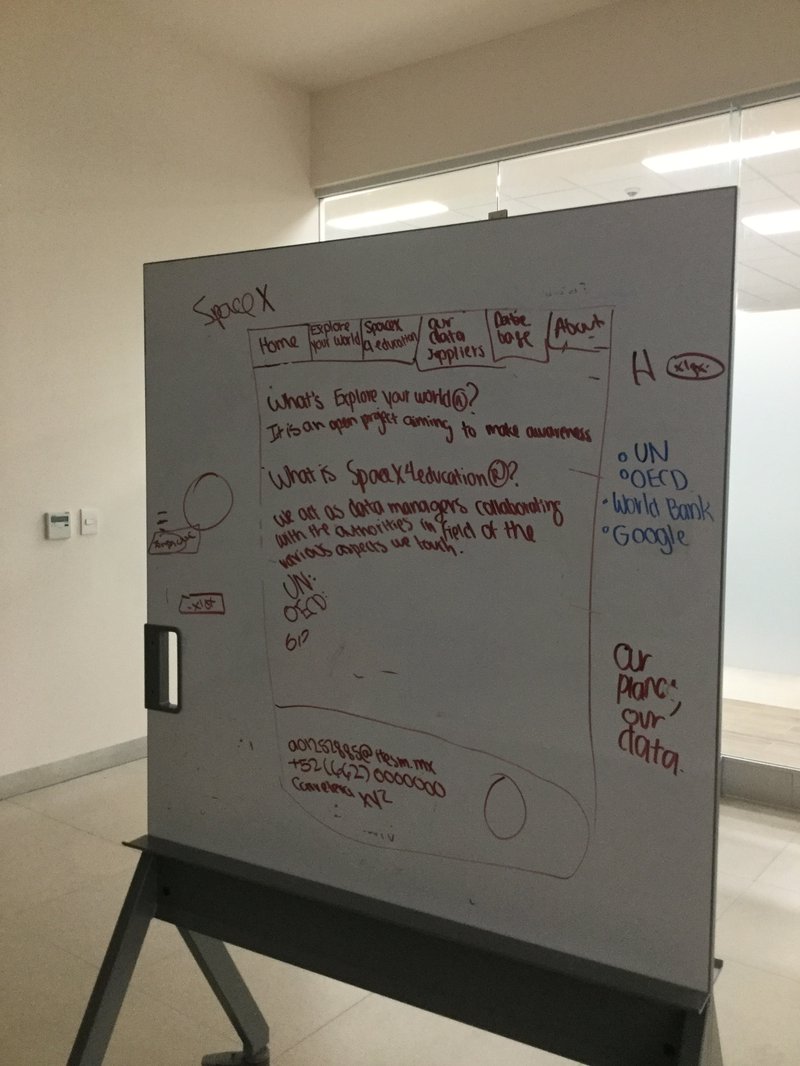 SpaceX
Home
Explore
your world
SpaceX
4 education
our
data
suppliers
Data
base
About
What's Explore your world®?
It is an open project aiming to make awareness
What is SpaceX4education®?
we act as data managers collaborating
with the authorities in field of the
various aspects we touch.
UN:
OECD:
a01252885@itesm.mx
+52(442)0000000
Carretera XYZ
.xlst
H
UN
OECD
World Bank
Google
our
our
data.